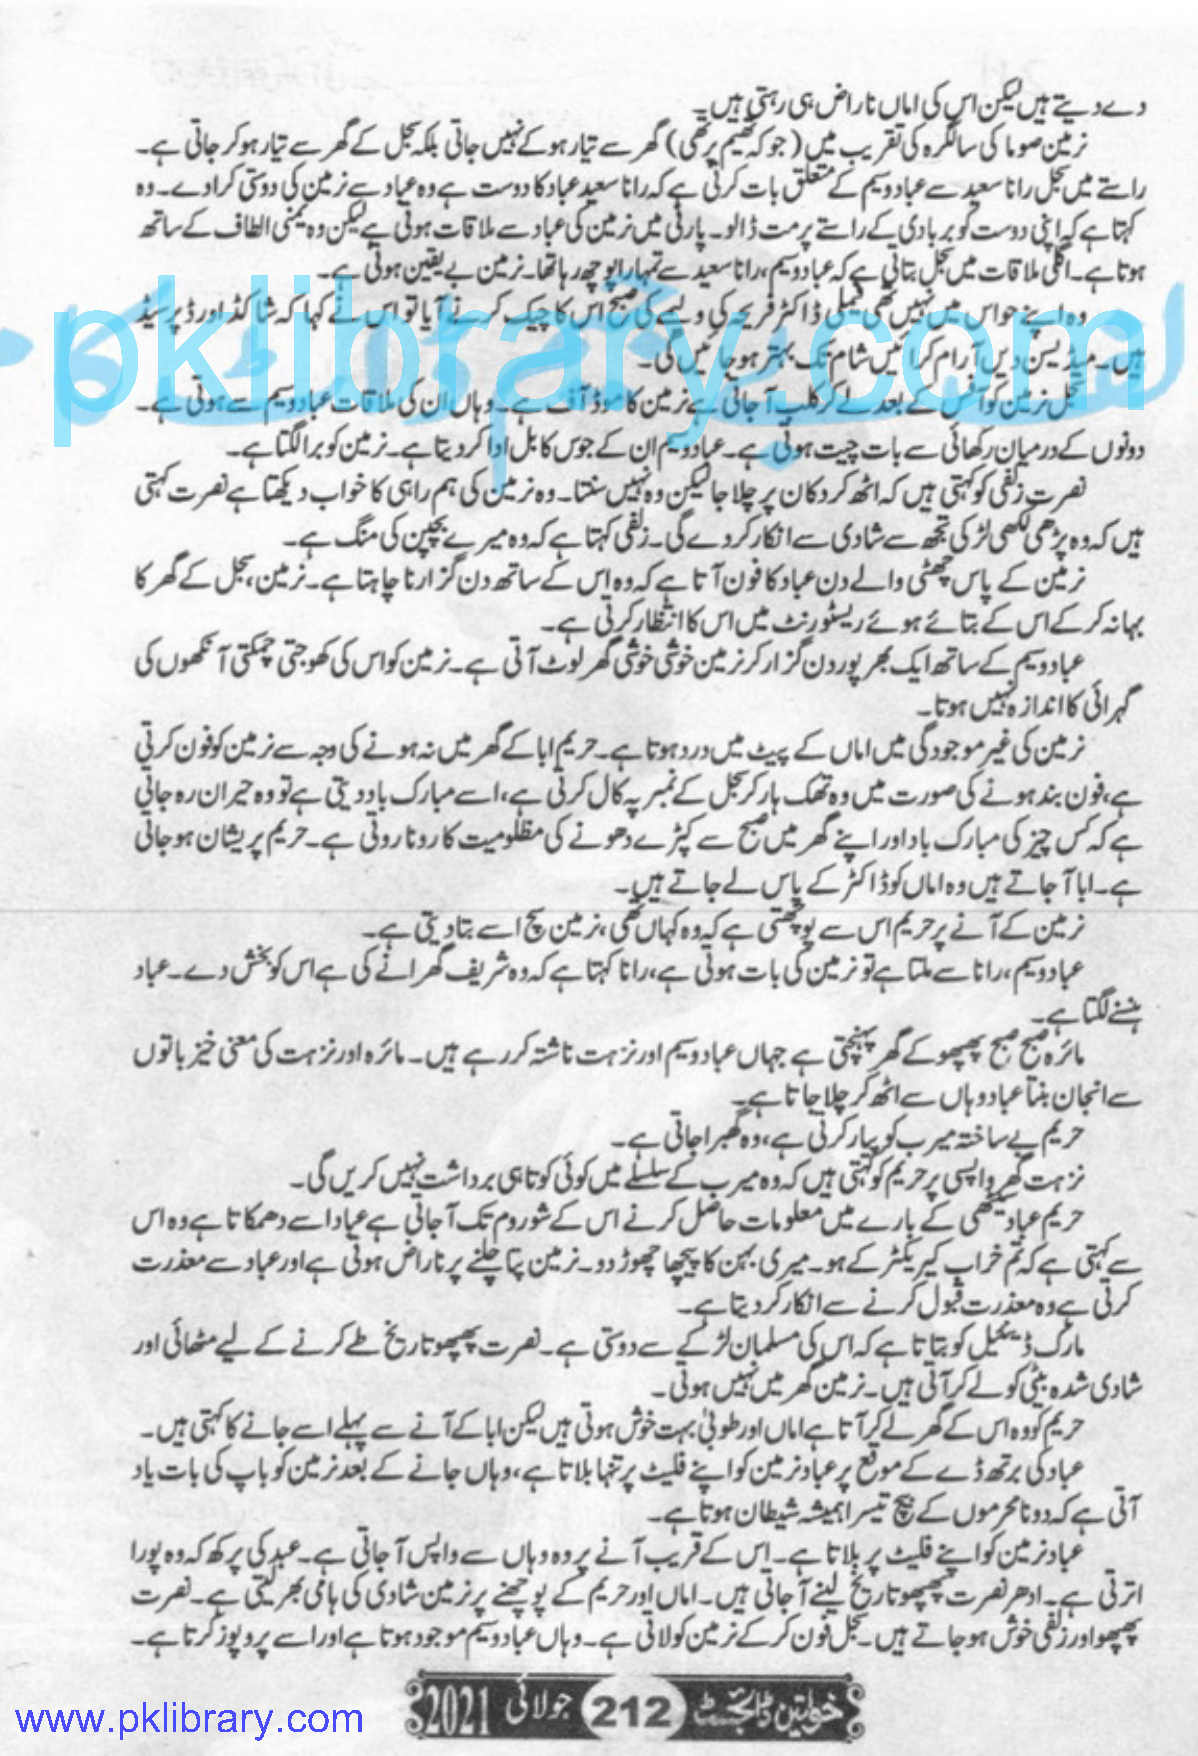 دے دیتے ہیں لیکن اس کی اماں ناراض ہی رہتی ہیں۔
نرمین صوما کی سالگرہ کی تقریب میں (جو کہ تھیم پر تھی) گھر سے تیار ہو کے نہیں جاتی بلکہ سجل کے گھر سے تیار ہو کر جاتی ہے۔
راستے میں سجل رانا سعید سے عباد وسیم کے متعلق بات کرتی ہے کہ رانا سعید عباد کا دوست ہے وہ عباد سے نرمین کی دوستی کرا دے۔ وہ
کہتا ہے کہ اپنی دوست کو بربادی کے راستے پر مت ڈالو۔ پارٹی میں نرمین کی عباد سے ملاقات ہوتی ہے لیکن وہ یمنی الطاف کے ساتھ
ہوتا ہے۔ اگلی ملاقات میں سجل بتاتی ہے کہ عباد وسیم، رانا سعید سے تمہارا پوچھ رہا تھا۔ نرمین بے یقین ہوتی ہے۔
وہ اپنے حواس میں نہیں تھی فیملی ڈاکٹر فریحہ کی ولیمے کی صبح اس کا چیک کرنے آیا تو اس نے کہا کہ شاکڈ اور ڈپریسڈ
ہیں۔ میڈیسن دیں آرام کرائیں شام تک بہتر ہو جائیں گی۔
سجل نرمین کو آفس کے بعد لے کر کلب آ جاتی ہے نرمین کا موڈ آف ہے۔ وہاں ان کی ملاقات عباد وسیم سے ہوتی ہے۔
دونوں کے درمیان رکھائی سے بات چیت ہوتی ہے۔ عباد وسیم ان کے جوس کا بل ادا کر دیتا ہے۔ نرمین کو برا لگتا ہے۔
نصرت زلفی کو کہتی ہیں کہ اٹھ کر دکان پر چلا جا لیکن وہ نہیں سنتا۔ وہ نرمین کی ہم راہی کا خواب دیکھتا ہے نصرت کہتی
ہیں کہ وہ پڑھی لکھی لڑکی تجھ سے شادی سے انکار کر دے گی۔ زلفی کہتا ہے کہ وہ میرے بچپن کی منگ ہے۔
نرمین کے پاس چھٹی والے دن عباد کا فون آتا ہے کہ وہ اس کے ساتھ دن گزارنا چاہتا ہے۔ نرمین، سجل کے گھر کا
بہانہ کر کے اس کے بتائے ہوئے ریسٹورنٹ میں اس کا انتظار کرتی ہے۔
عباد وسیم کے ساتھ ایک بھرپور دن گزار کر نرمین خوشی خوشی گھر لوٹ آتی ہے۔ نرمین کو اس کی کھوجتی چمکتی آنکھوں کی
گہرائی کا اندازہ نہیں ہوتا۔
نرمین کی غیر موجودگی میں اماں کے پیٹ میں درد ہوتا ہے۔ حریم ابا کے گھر میں نہ ہونے کی وجہ سے نرمین کو فون کرتی
ہے، فون بند ہونے کی صورت میں وہ تھک ہار کر سجل کے نمبر پہ کال کرتی ہے، اسے مبارک باد دیتی ہے تو وہ حیران رہ جاتی
ہے کہ کس چیز کی مبارک باد اور اپنے گھر میں صبح سے کپڑے دھونے کی مظلومیت کا رونا روتی ہے۔ حریم پریشان ہو جاتی
ہے۔ ابا آ جاتے ہیں وہ اماں کو ڈاکٹر کے پاس لے جاتے ہیں۔
نرمین کے آنے پر حریم اس سے پوچھتی ہے کہ وہ کہاں تھی، نرمین سچ اسے بتا دیتی ہے۔
عباد وسیم، رانا سے ملتا ہے تو نرمین کی بات ہوتی ہے، رانا کہتا ہے کہ وہ شریف گھرانے کی ہے اس کو بخش دے۔ عباد
ہنسنے لگتا ہے۔
مائرہ صبح صبح پھپھو کے گھر پہنچتی ہے جہاں عباد وسیم اور نزہت ناشتہ کر رہے ہیں۔ مائرہ اور نزہت کی معنی خیز باتوں
سے انجان بنتا عباد وہاں سے اٹھ کر چلا جاتا ہے۔
حریم بے ساختہ میرب کو پیار کرتی ہے، وہ گھبرا جاتی ہے۔
نزہت گھر واپسی پر حریم کو کہتی ہیں کہ وہ میرب کے سلسلے میں کوئی کوتاہی برداشت نہیں کریں گی۔
حریم عباد کے بارے میں معلومات حاصل کرنے اس کے شوروم تک آ جاتی ہے عباد اسے دھمکاتا ہے وہ اس
سے کہتی ہے کہ تم خراب کیریکٹر کے ہو۔ میری بہن کا پیچھا چھوڑ دو۔ نرمین پتا چلنے پر ناراض ہوتی ہے اور عباد سے معذرت
کرتی ہے وہ معذرت قبول کرنے سے انکار کر دیتا ہے۔
مارک ڈینئیل کو بتاتا ہے کہ اس کی مسلمان لڑکے سے دوستی ہے۔ نصرت پھپھو تاریخ طے کرنے کے لیے مٹھائی اور
شادی شدہ بیٹی کو لے کر آتی ہیں۔ نرمین گھر میں نہیں ہوتی۔
حریم کو وہ اس کے گھر لے کر آتا ہے اماں اور طوبیٰ بہت خوش ہوتی ہیں لیکن ابا کے آنے سے پہلے اسے جانے کا کہتی ہیں۔
عباد کی برتھ ڈے کے موقع پر عباد نرمین کو اپنے فلیٹ پر تنہا بلاتا ہے، وہاں جانے کے بعد نرمین کو باپ کی بات یاد
آتی ہے کہ دو نامحرموں کے بیچ تیسرا ہمیشہ شیطان ہوتا ہے۔
عباد نرمین کو اپنے فلیٹ پر بلاتا ہے۔ اس کے قریب آنے پر وہ وہاں سے واپس آ جاتی ہے۔ عبد کی پرکھ کہ وہ پورا
اترتی ہے۔ ادھر نصرت پھپھو تاریخ لینے آ جاتی ہیں۔ اماں اور حریم کے پوچھنے پر نرمین شادی کی ہامی بھر لیتی ہے۔ نصرت
پھپھو اور زلفی خوش ہو جاتے ہیں۔ سجل فون کر کے نرمین کو لاتی ہے۔ وہاں عباد وسیم موجود ہوتا ہے اور اسے پروپوز کرتا ہے۔
pklibrary.com
خواتین ڈائجسٹ 212 جولائی 2021
www.pklibrary.com